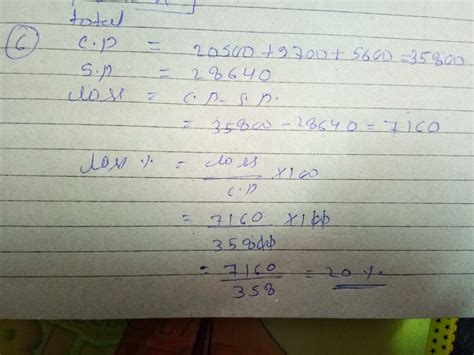 total
(6) C.P = 20500 + 9700 + 5600 = 35800
S.P = 28640
loss = C.P - S.P.
= 35800 - 28640 = 7160
loss % = loss / C.P × 100
= 7160 / 35800 × 100
= 7160 / 358 = 20 %.